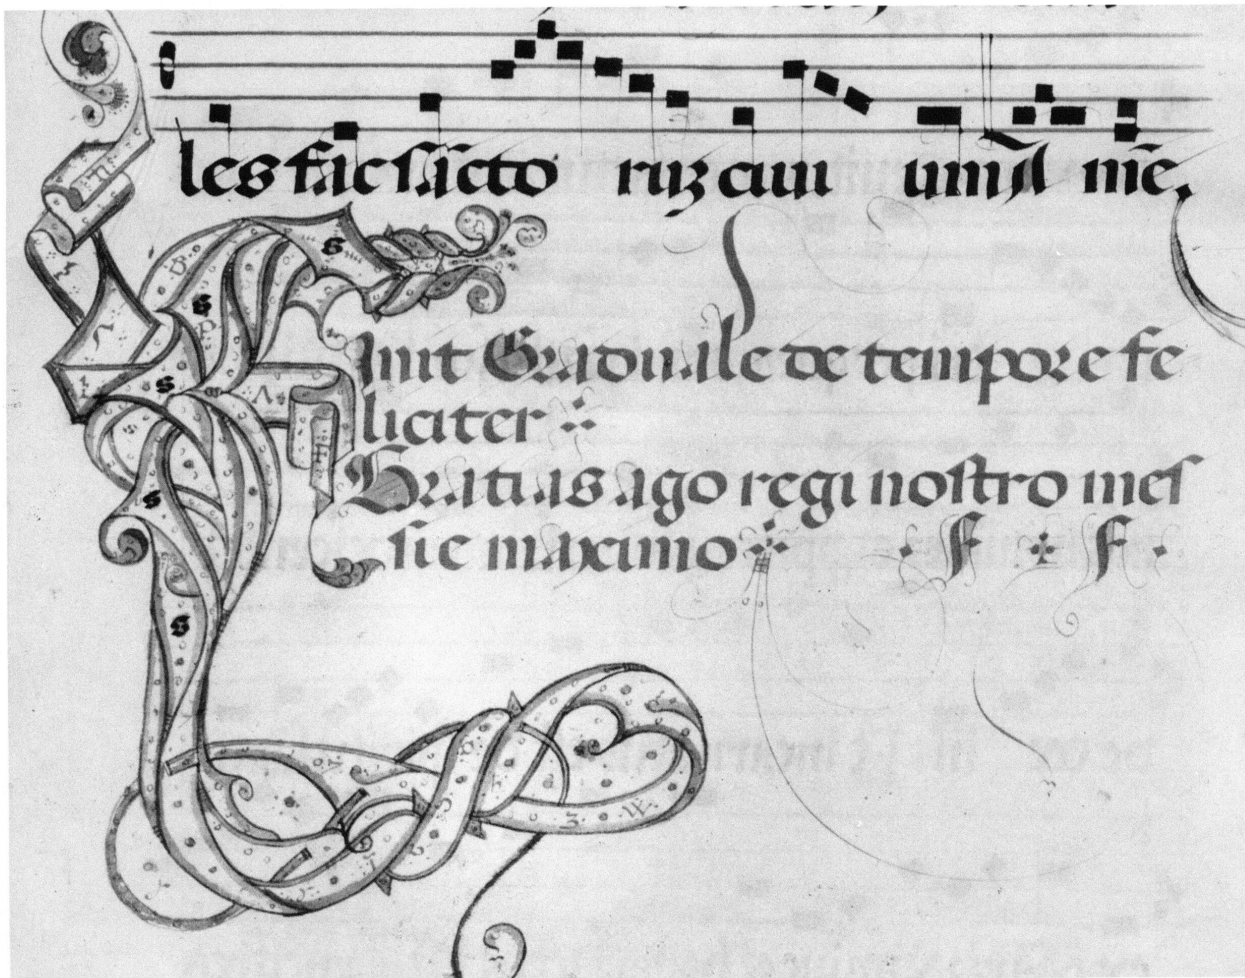 les fac sācto ruz
Finit Graduale de tempore fe
liciter
Gratias ago regi nostro mes
sie maximo · F + F ·